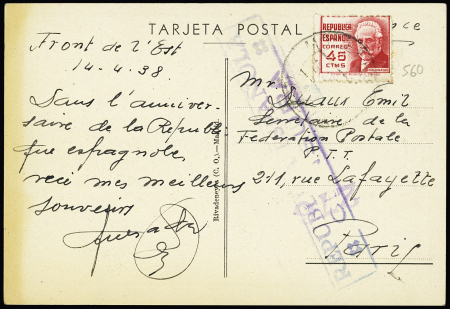 TARJETA POSTAL
Front de l'Est
14-4-38
Dans l'anniver-
saire de la Républi
que espagnole
reci mes meilleurs
souvenirs
Rivadeneyra (C. O.).—Madrid.
REPUBLICA
ESPAÑOLA
CORREOS
45
CTMS
560
Mr. Emil
Secretaire de la
Federation Postale
P.T.T.
211, rue Lafayette
Paris